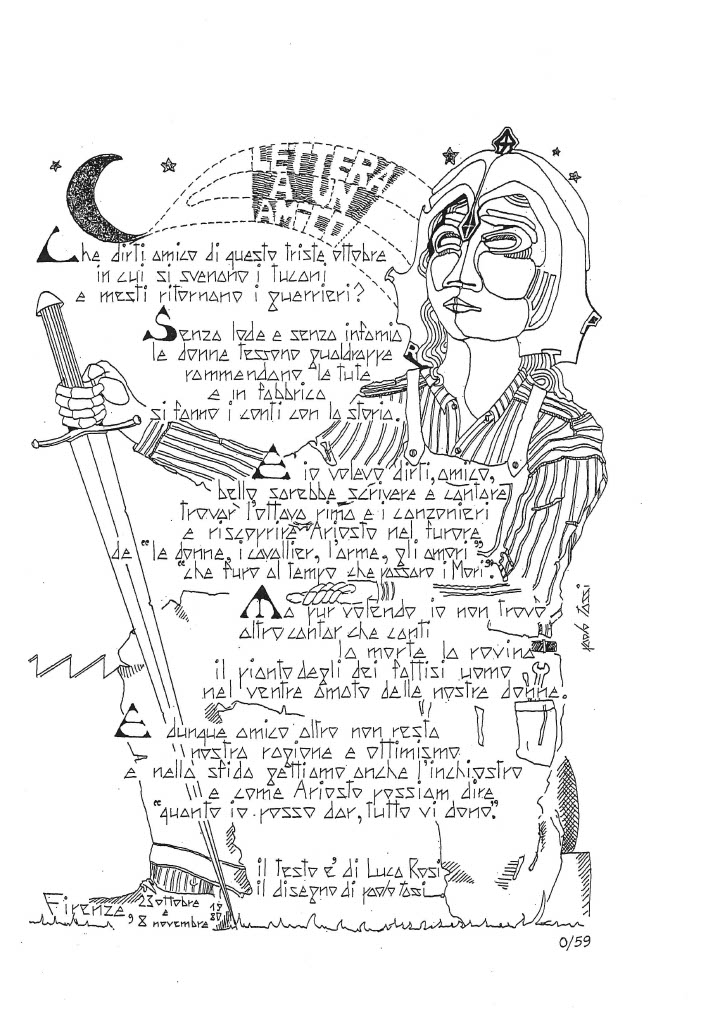 LETTERA
A UN
AMICO
Che dirti amico di questo triste ottobre
in cui si svenano i tucani
e mesti ritornano i guerrieri?
Senza lode e senza infamia
le donne tessono gualdrappe
rammendano le tute
e in fabbrica
si fanno i conti con la storia.
E io volevo dirti, amico,
bello sarebbe scrivere e cantare
trovar l'ottava rima e i canzonieri
e riscoprire Ariosto nel furore
de "le donne, i cavallier, l'arme, gli amori"
"che furo al tempo che passaro i Mori".
Ma pur volendo io non trovo
altro cantar che canti
la morte la rovina
il pianto degli dei fattisi uomo
nel ventre amato delle nostre donne.
E dunque amico altro non resta
nostra ragione e ottimismo
e nella sfida gettiamo anche l'inchiostro
e come Ariosto possiam dire
"quanto io posso dar, tutto vi dono".
il testo e' di Luca Rosi
il disegno di paolo tasi
Firenze, 23 ottobre
e
8 novembre 1980
0/59